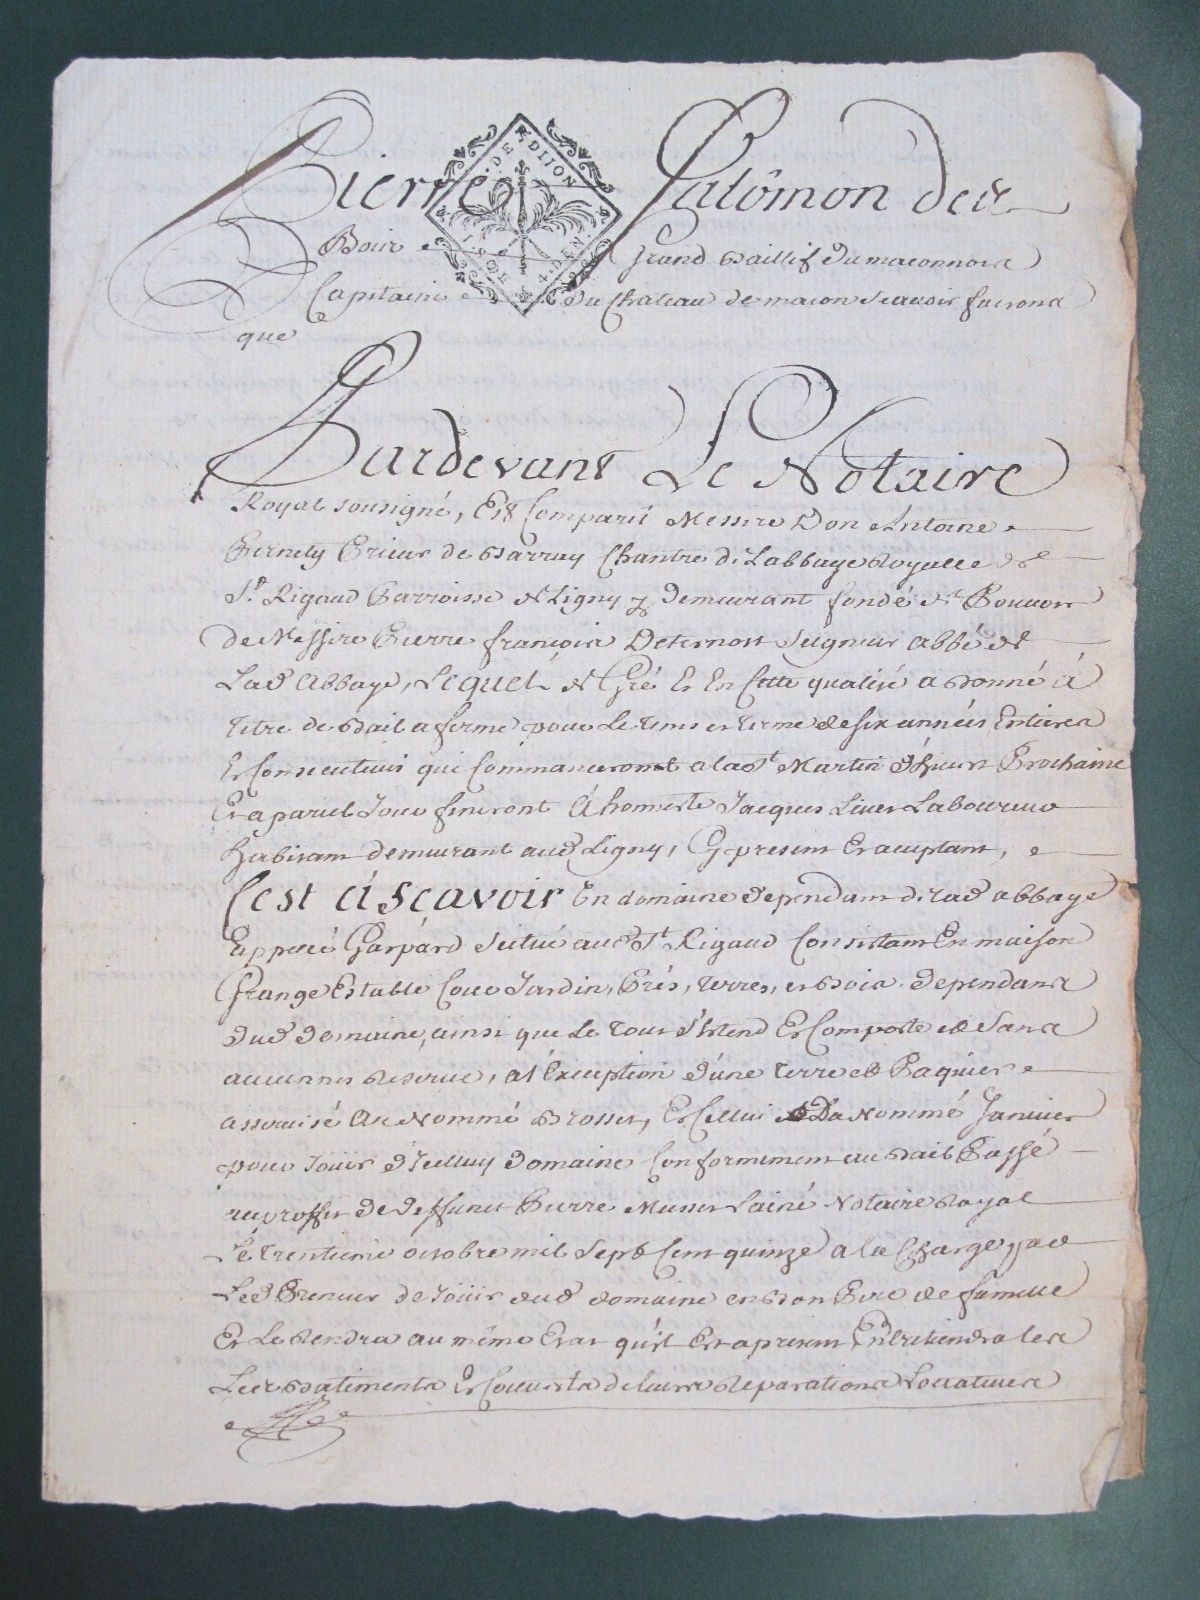 Pierre Salomon des
DE DIJON
4. DEN.
Bois Grand Baillif du maconnois
Capitaine du Chateau de macon scavoir faisons
que
Pardevant Le Notaire
Royal sousigné, Est Comparü Messire Don Antoine
Pernety Prieur de Barnay Chantre de Labbaye Royalle de
St. Rigaud Parroisse de Ligny y demeurant fondé de Pouvoir
de Messire Pierre françois Deternost Seigneur abbé de
Lad abbaye, Lequel de Gré Et En Cette qualité a donné á
titre de Bail a ferme pour Le tems et terme de six années Entieres
Et Consecutives qui Commanceront a la St Martin d'hiver Prochaine
Et a pareil Jour finiront á honneste Jacques Livet Laboureur
habitant demeurant aud Ligny, Cy present Et aceptant,
C'est á Scavoir Un domaine dependant de lad abbaye
appellé Gaspard scitué aud St Rigaud Consistant En maison
Grange Estable Cour Jardin, Prés, terres, et Bois dependans
dud domaine, ainsi que Le tout s'Etend Et Comporte et Sans
aucunnes Reserve, a l'Exception d'une terre et Paquier
assensé au Nommé Brosset, Et Celluy du Nommé Janvier
pour Jouir d'Icelluy domaine Conformement au Bail Passé
au proffit de deffunct Pierre Musset L'ainé Notaire Royal
Le trentieme octobre mil Sept Cent quinze a la Charge par
Led Preneur de Jouir dud domaine en Bon Pere de famille
Et Le Rendra au même Etat qu'il Est a present Entretiendra les
Led Batiments Et Couverts de leurs Reparations Locatives